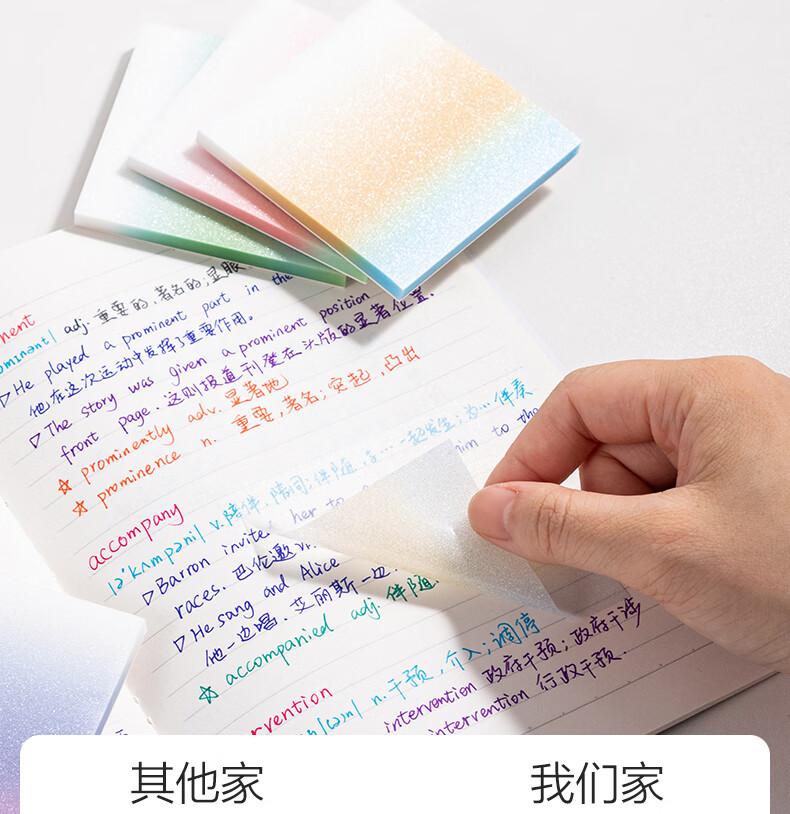 nent
ominent| adj. 重要的,著名的;显眼
▷He played a prominent part in the
他在这次运动中发挥了重要作用。
▷The story was given a prominent position
front page. 这则报道刊登在头版的显著位置.
☆ prominently adv. 显著地
☆ prominence n. 重要,著名;突起,凸出
accompany
|ə'kʌmpəni| v.陪伴,陪同;伴随,与…一起发生;为…伴奏
▷Barron invite her to him to the
races. 巴伦邀
▷He sang and Alice
他一边唱,艾丽斯一边
☆ accompanied adj. 伴随.
rvention
n.干预,介入;调停
intervention 政府干预;政府干涉
intervention 行政干预.
其他家
我们家